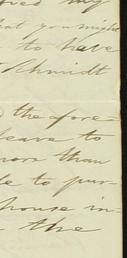 my
that you might
to have
Schmidt
the fore-
leave to
more than
le to pur-
house in-
the